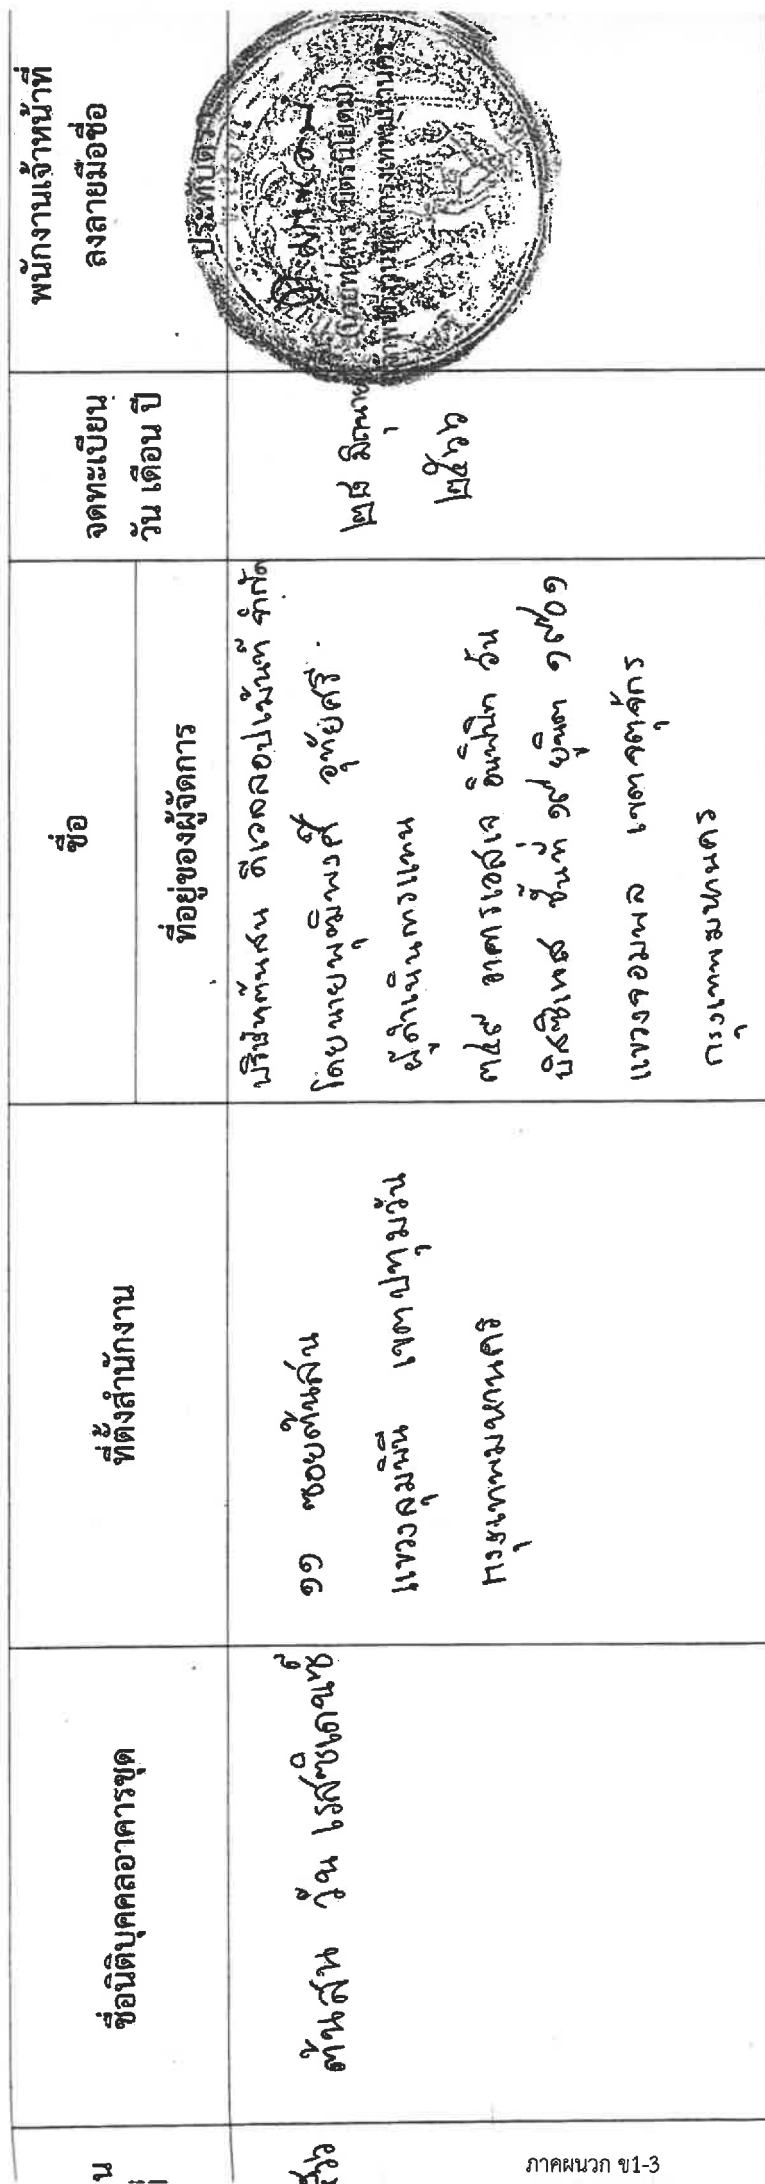 ชื่อนิติบุคคลอาคารชุด
ที่ตั้งสำนักงาน
ชื่อ
ที่อยู่ของผู้จัดการ
จดทะเบียน
วัน เดือน ปี
พนักงานเจ้าหน้าที่
ลงลายมือชื่อ
ต้นสน วัน เรสซิเดนซ์
๑๑ ซอยต้นสน
แขวงลุมพินี เขตปทุมวัน
กรุงเทพมหานคร
บริษัทต้นสน ดีเวลลอปเม้นท์ จำกัด
โดยนายพุฒิพงศ์ อุทัยศรี
ผู้ดำเนินการแทน
๓๔๙ อาคารเอสเจ อินฟินิท วัน
บิสซิเนส ชั้นที่ ๑๙ ยูนิต ๑๙๐๑
แขวงจอมพล เขตจตุจักร
กรุงเทพมหานคร
๒๘ มิถุนายน
๒๕๖๖
ประทับตรา
ภาคผนวก ข1-3